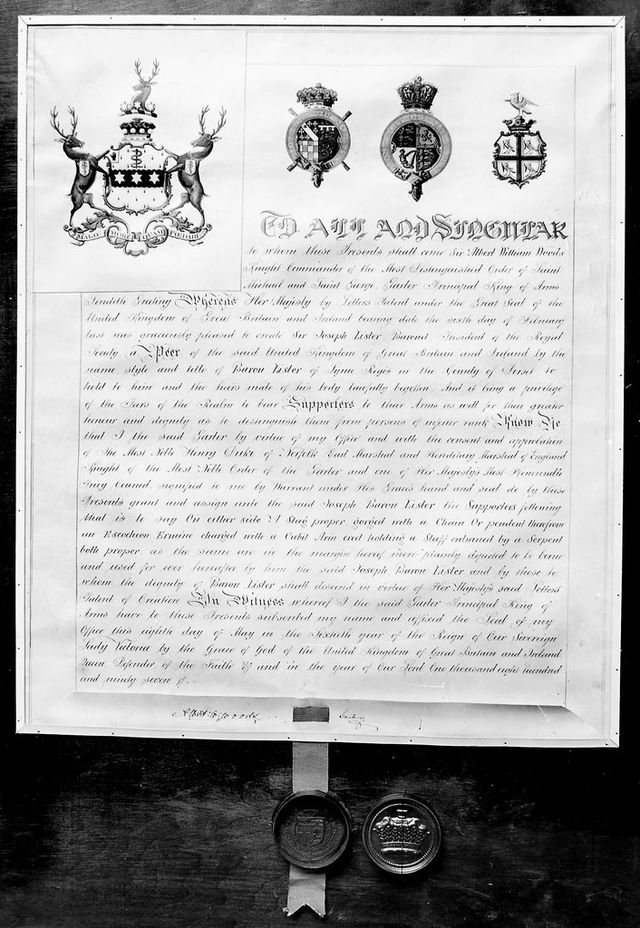 TO ALL AND SINGULAR
to whom these Presents shall come Sir Albert William Woods
Knight Commander of the Most Distinguished Order of Saint
Michael and Saint George, Garter Principal King of Arms.
Sendeth Greeting Whereas Her Majesty by Letters Patent under the Great Seal of the
United Kingdom of Great Britain and Ireland bearing date the sixth day of February
last was graciously pleased to create Sir Joseph Lister Baronet President of the Royal
Society a Peer of the said United Kingdom of Great Britain and Ireland by the
name style and title of Baron Lister of Lyme Regis in the County of Dorset to
hold to him and the heirs male of his body lawfully begotten And it being a privilege
of the Peers of the Realm to bear Supporters to their Arms as well for their greater
honour and dignity as to distinguish them from persons of inferior rank Know Ye
that I the said Garter by virtue of my Office and with the consent and approbation
of The Most Noble Henry Duke of Norfolk Earl Marshal and Hereditary Marshal of England
Knight of the Most Noble Order of the Garter and one of Her Majesty's Most Honourable
Privy Council signified to me by Warrant under His Grace's hand and seal do by these
Presents grant and assign unto the said Joseph Baron Lister the Supporters following
that is to say On either side A Stag proper gorged with a Chain Or pendent therefrom
an Escocheon Ermine charged with a Cubit Arm erect holding a Staff entwined by a Serpent
both proper as the same are in the margin hereof more plainly depicted to be borne
and used for ever hereafter by him the said Joseph Baron Lister and by those to
whom the dignity of Baron Lister shall descend in virtue of Her Majesty's said Letters
Patent of Creation In Witness whereof I the said Garter Principal King of
Arms have to these Presents subscribed my name and affixed the Seal of my
Office this eighth day of May in the Sixtieth year of the Reign of Our Sovereign
Lady Victoria by the Grace of God of the United Kingdom of Great Britain and Ireland
Queen, Defender of the Faith &c and in the year of Our Lord One thousand eight hundred
and ninety seven
Albert W. Woods Garter